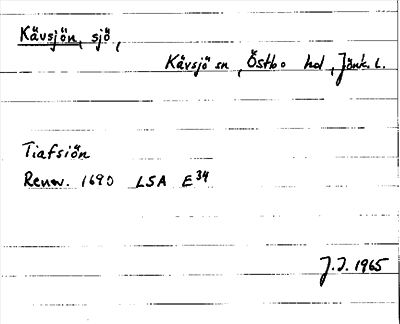 Kävsjön, sjö,
Kävsjö sn, Östbo hd, Jönk. l.
Tiafsiön
Renov. 1690 LSA E34
J.I. 1965